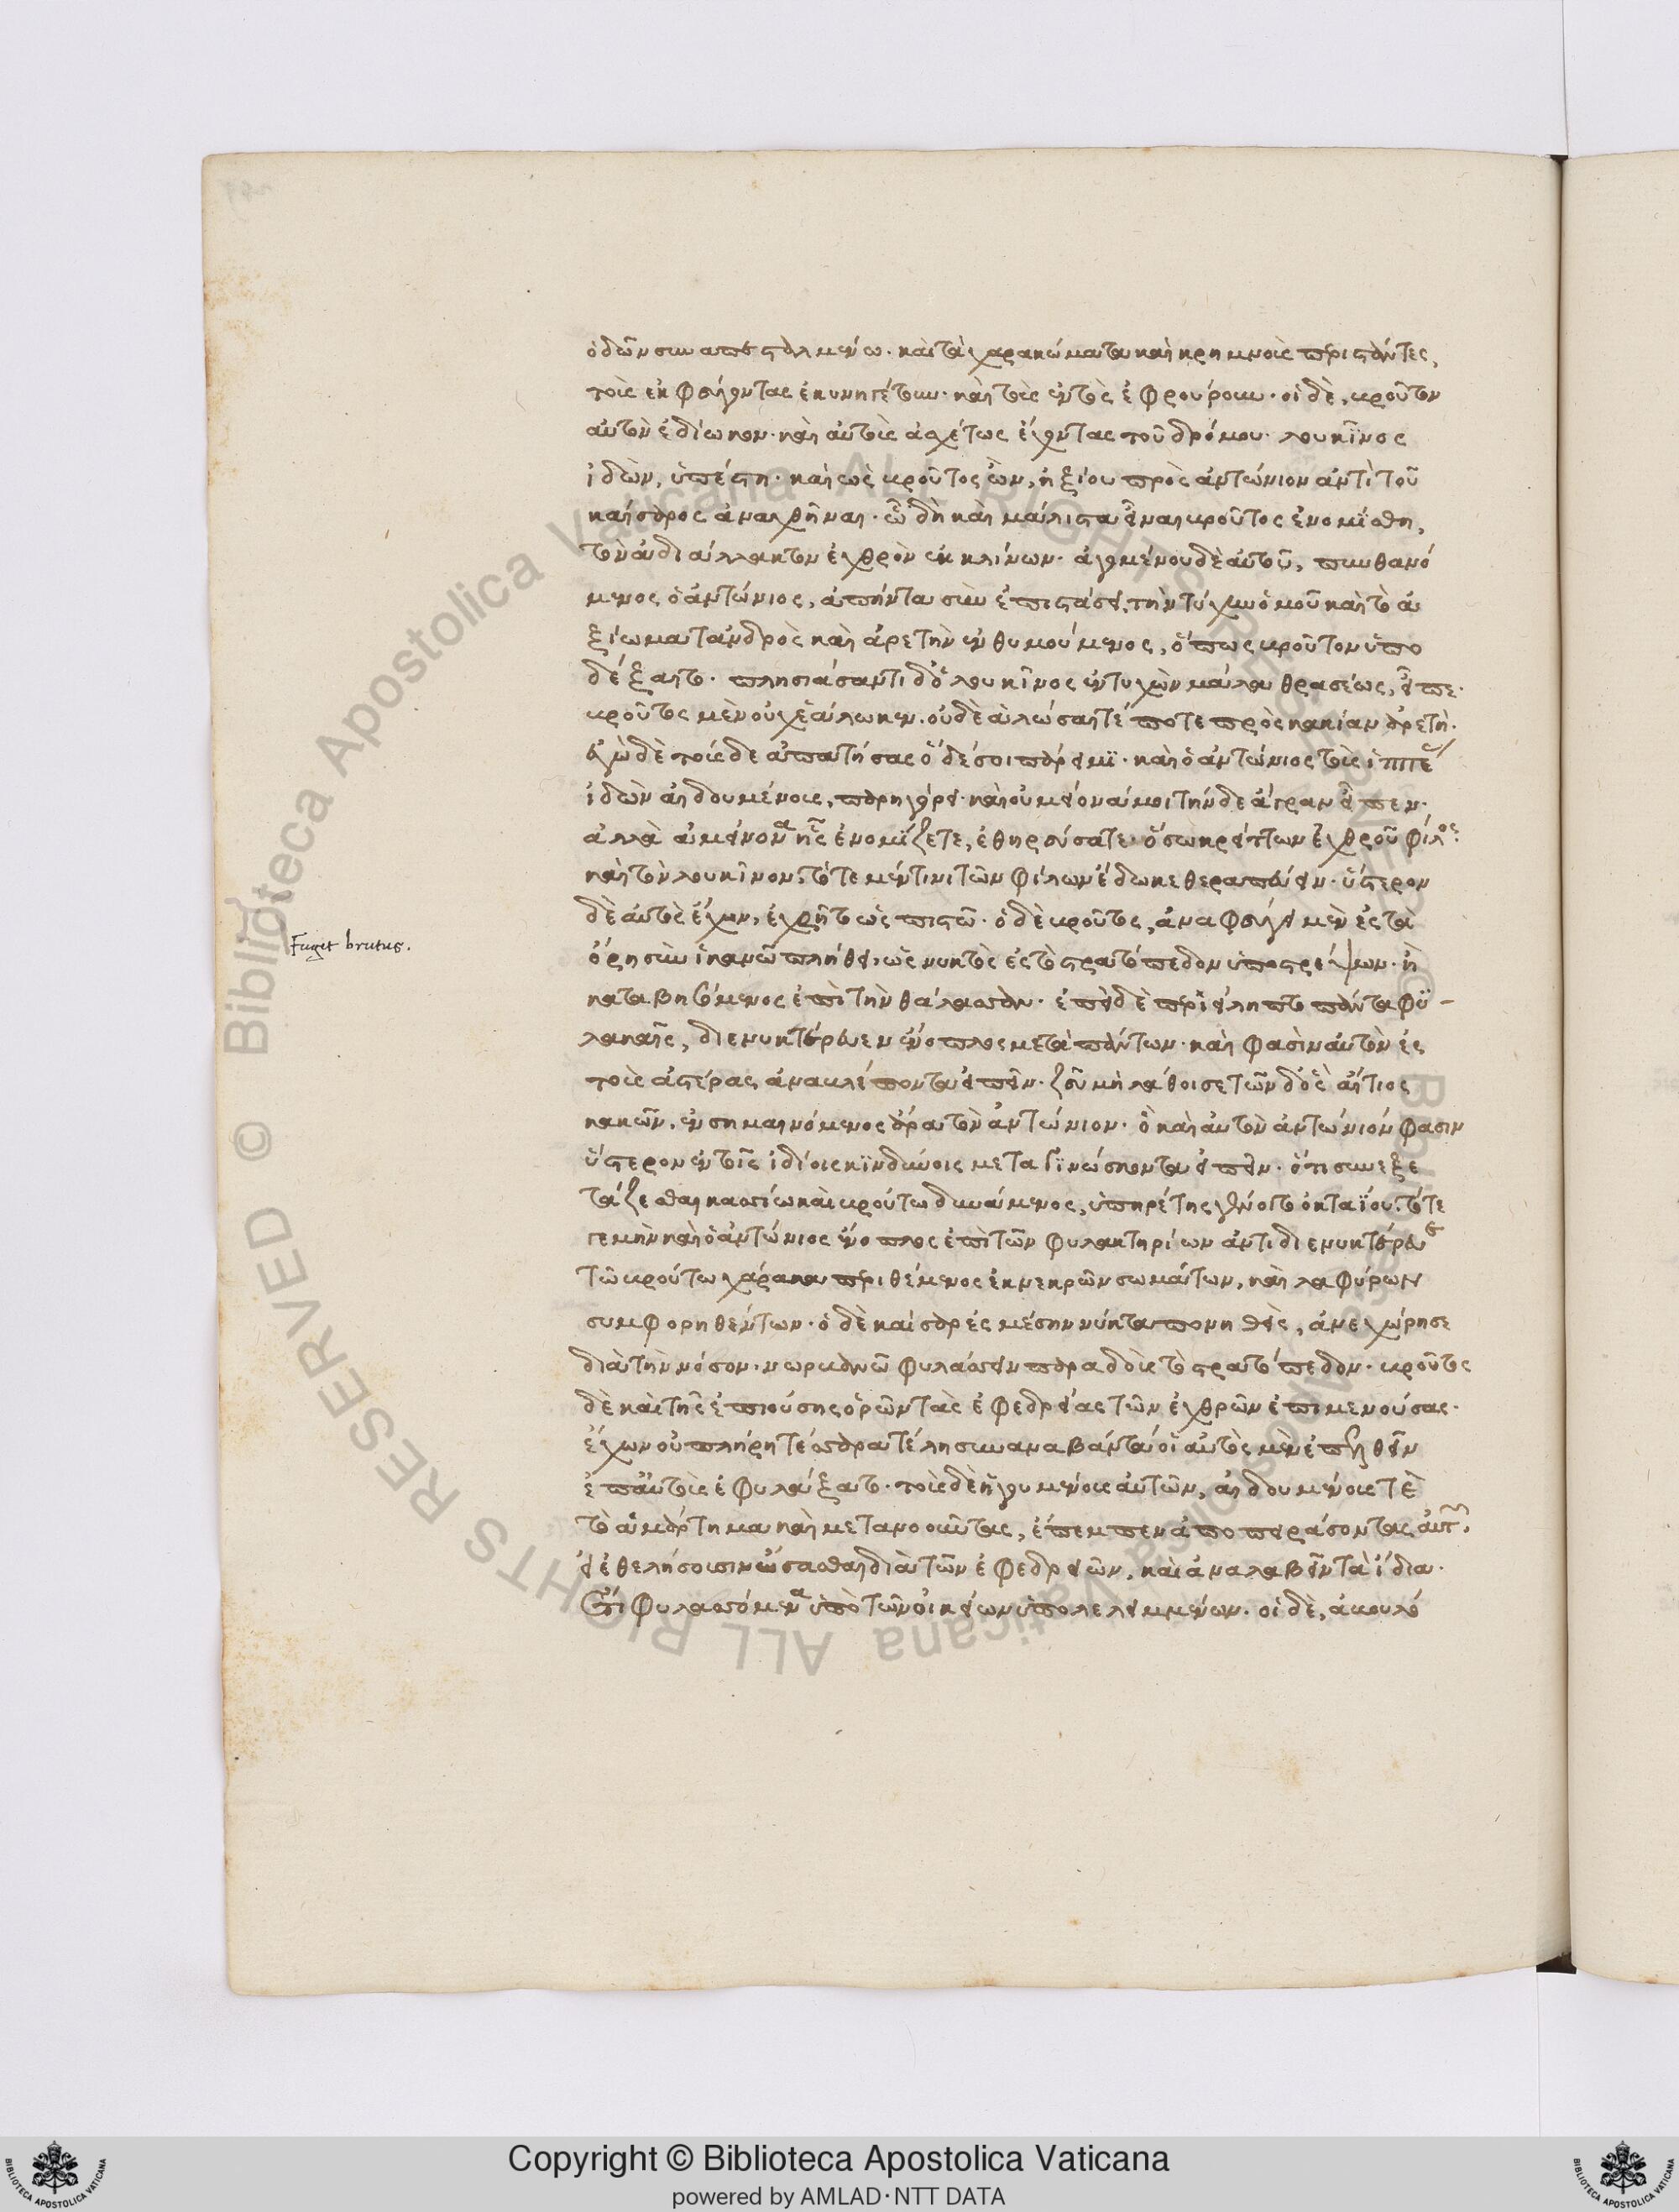 ὁδῶν συναπεσταλμένω· καὶ τὰ χαρακώματα καὶ κρημνοὺς περιστάντες,
τοὺς ἐκφεύγοντας ἐκυνηγέτουν· καὶ τοὺς ἐντὸς ἐφρούρουν· οἱ δὲ, βροῦτον
αὐτὸν ἐδίωκον· καὶ αὐτοὺς ἀσχέτως ἔχοντας τοῦ δρόμου· λουκῖνος
ἰδὼν, ὑπέστη· καὶ ὡς βροῦτος ὢν, ἠξίου πρὸς ἀντώνιον ἀντὶ τοῦ
καίσαρος ἀναχθῆναι· ὧ δὴ καὶ μάλιστα εἶναι βροῦτος ἐνομίσθη,
τὸν ἀδιάλλακτον ἐχθρὸν ἐκκλίνων· ἀγομένου δὲ αὐτοῦ, πυνθανό
μενος ὁ ἀντώνιος, ἀπήντα σὺν ἐπιστάσει, τὴν τύχην ὁμοῦ καὶ τὸ ἀ
ξίωμα τἀνδρὸς καὶ ἀρετὴν ἐνθυμούμενος, ὅπως βροῦτον ὑπο
δέξαιτο· πλησιάσαντι δ' ὁ λουκῖνος ἐντυχὼν μάλα θρασέως, εἶπε·
βροῦτος μὲν οὐχ ἑάλωκεν· οὐδὲ ἁλώσεταί ποτε πρὸς κακίαν ἀρετή·
ἐγὼ δὲ τούσδε ἀπατήσας ὅδε σοι πάρειμι· καὶ ὁ ἀντώνιος τοὺς ἱππέας
ἰδὼν αἰδουμένους, παρηγόρει· καὶ οὐ μείονά μοι τήνδε ἄγραν εἶπεν·
ἀλλὰ ἀμείνονα ἧς ἐνομίζετε, ἐθηρεύσατε· ὅσω κρείττων ἐχθροῦ φίλος·
καὶ τὸν λουκῖνον, τότε μέν τινι τῶν φίλων ἔδωκε θεραπεύειν· ὕστερον
δὲ αὐτὸς ἔχων, ἐχρῆτο ὡς πιστῶ· ὁ δὲ βροῦτος, ἀναφεύγει μὲν ἐς τὰ
Fugit brutus.
ὄρη σὺν ἱκανῶ πλήθει, ὡς νυκτὸς ἐς τὸ στρατόπεδον ὑποστρέψων· ἢ
καταβησόμενος ἐπὶ τὴν θάλασσαν· ἐπεὶ δὲ περιείληπτο πάντα φυ-
λακαῖς, διενυκτέρευεν ἔνοπλος μετὰ πάντων· καὶ φασὶν αὐτὸν ἐς
τοὺς ἀστέρας ἀναβλέποντα εἰπεῖν· ζεῦ μὴ λάθοι σε τῶνδ' ὃς αἴτιος
κακῶν, ἐνσημαινόμενος ἄρα τὸν ἀντώνιον· ὃ καὶ αὐτὸν ἀντώνιόν φασιν
ὕστερον ἐν τοῖς ἰδίοις κινδύνοις μεταγινώσκοντα εἰπεῖν· ὅτι συνεξε
τάζεσθαι κασσίω καὶ βρούτω δυνάμενος, ὑπηρέτης γένοιτο ὀκταΐου· τότε
γε μὴν καὶ ὁ ἀντώνιος ἔνοπλος ἐπὶ τῶν φυλακτηρίων ἀντιδιενυκτέρευε
τῶ βρούτω χάρακα περιθέμενος ἐκ νεκρῶν σωμάτων, καὶ λαφύρων
συμφορηθέντων· ὁ δὲ καῖσαρ ἐς μέσην νύκτα πονηθεὶς, ἀνεχώρησε
διὰ τὴν νόσον· νωρβανῶ φυλάσσειν παραδοὺς τὸ στρατόπεδον· βροῦτος
δὲ καὶ τῆς ἐπιούσης ὁρῶν τὰς ἐφεδρείας τῶν ἐχθρῶν ἐπιμενούσας·
ἔχων οὐ πλήρη τέσσαρα τέλη συναναβάντα οἱ αὐτὸς μὲν ἐπελθεῖν
ἐπ' αὐτοὺς ἐφυλάξατο· τοὺς δὲ ἡγουμένους αὐτῶν, αἰδουμένους τὲ
τὸ ἁμάρτημα καὶ μετανοοῦντας, ἔπεμπεν ἀποπειράσοντας αὐτῶν,
εἰ ἐθελήσουσιν ὤσασθαι διὰ τῶν ἐφεδρειῶν, καὶ ἀναλαβεῖν τὰ ἴδια·
ἔτι φυλασσόμενα ὑπὸ τῶν οἰκείων ὑπολελειμμένων· οἱ δὲ, ἀβουλό